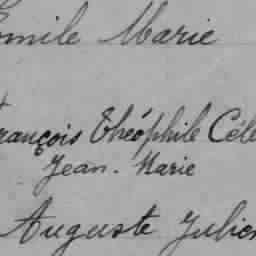 Emile Marie
François Théophile Céle
Jean-Marie
Auguste Julien